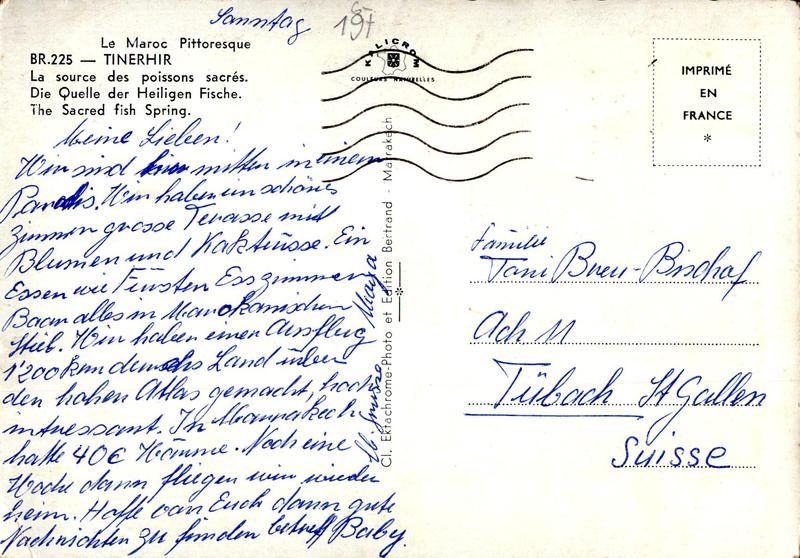 Sonntag
197
Le Maroc Pittoresque
BR.225 — TINERHIR
La source des poissons sacrés.
Die Quelle der Heiligen Fische.
The Sacred fish Spring.
KALICROM
COULEURS NATURELLES
IMPRIMÉ
EN
FRANCE
*
Meine Lieben!
Wir sind hier mitten in einem
Paradis. Wir haben ein schönes
Zimmer grosse Terasse mitt
Blumen und Kaktüsse. Ein
Essen wie Fürsten Esszimmer
Baar alles in Marokanischen
Stiel. Wir haben einen Ausflug
1'200 km durchs Land über
den hohen Atlas gemacht, hoch
intressant. In Marrakech
hatte 40C Wärme. Noch eine
Woche dann fliegen wir wieder
heim. Hoffe von Euch dann gute
Nachrichten zu finden betreff Baby.
Maya
Cl. Ektachrome-Photo et Edition Bertrand - Marrakech
Familie
Toni Bischof
Ach 11
Tübach St Gallen
Suisse